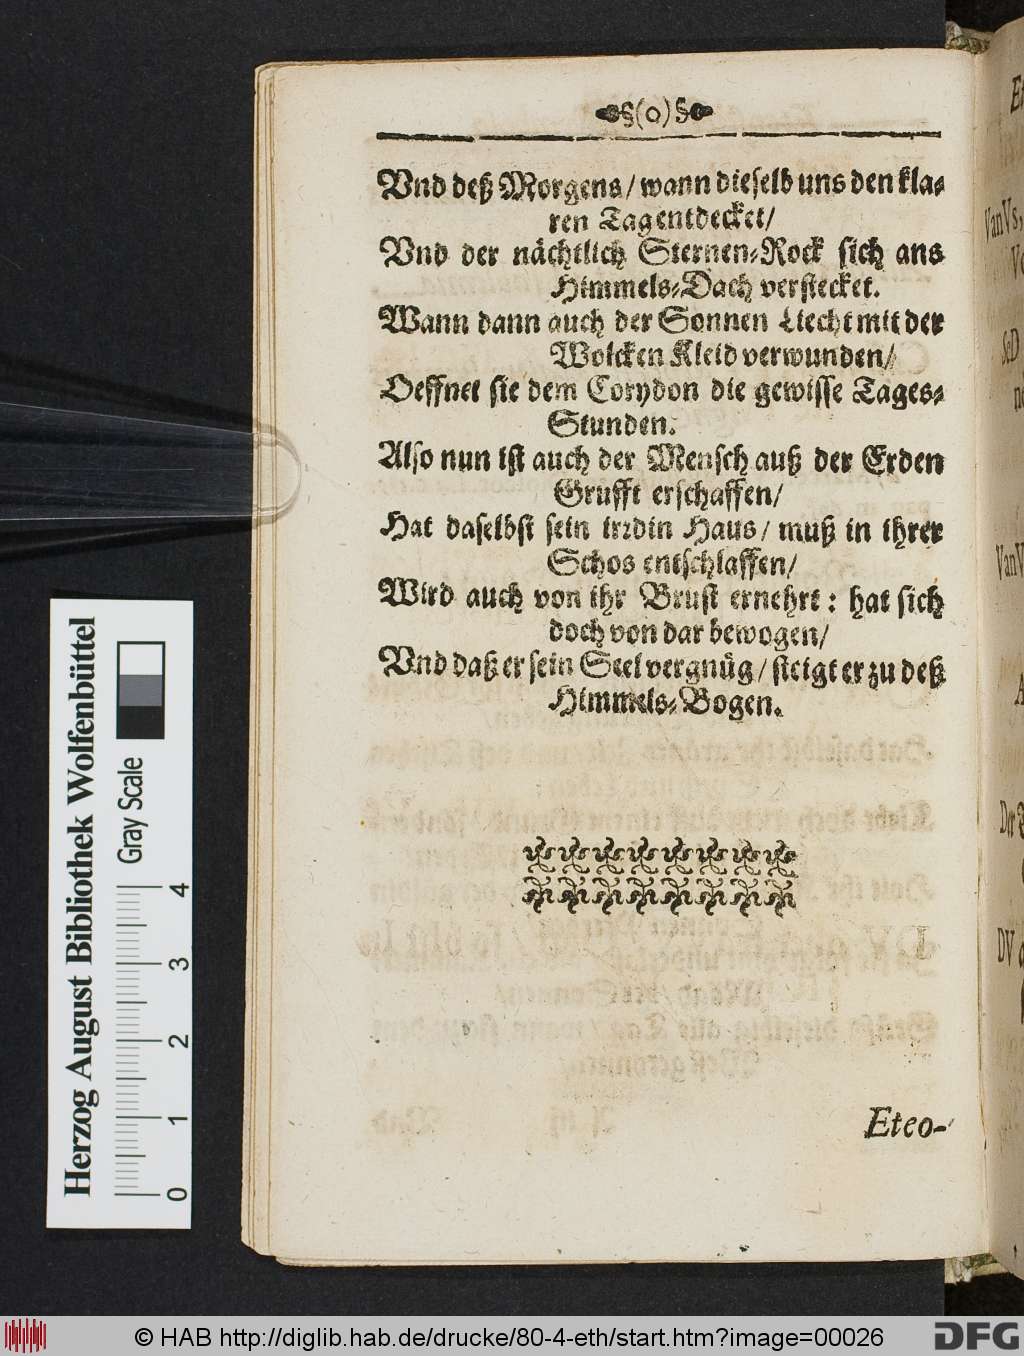 §(o)§
Vnd deß Morgens/ wann dieselb uns den kla-
ren Tag entdecket/
Vnd der nächtlich Sternen-Rock sich ans
Himmels-Dach verstecket.
Wann dann auch der Sonnen Liecht mit der
Wolcken Kleid verwunden/
Oeffnet sie dem Corydon die gewisse Tages-
Stunden.
Also nun ist auch der Mensch auß der Erden
Grufft erschaffen/
Hat daselbst sein irrdin Haus/ muß in ihrer
Schos entschlaffen/
Wird auch von ihr Brust ernehrt: hat sich
doch von dar bewogen/
Vnd daß er sein Seel vergnüg/ steigt er zu deß
Himmels-Bogen.
Eteo-
Herzog August Bibliothek Wolfenbüttel
Gray Scale
0 1 2 3 4
VanVs,
DV
© HAB http://diglib.hab.de/drucke/80-4-eth/start.htm?image=00026
DFG